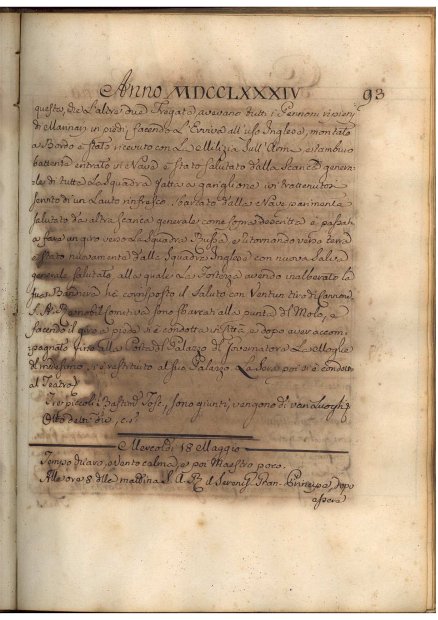 Anno MDCCLXXXIV 93
questa, che L'altre due Fregate avevano tutti i Pennoni ripieni
di Marinari in piedi, facendo L'Evviva all'uso Inglese, montato
a Bordo è stato ricevuto con La Milizia Sull'Arme e tamburo
battente entrato in Nave è stato salutato dalla Scarica genera-
le di tutta La Squadra fatta a ivi trattenutosi
servito di un Lauto rinfresco, sbarcato dalla Nave parimente
salutato da altra scarica generale come sopra descritta è passato
a fare un giro verso La Squadra Russa e ritornando verso terra
è stato nuovamente dalla Squadra Inglese con nuova Salva
generale salutato alla quale La Fortezza avendo inalberato la
sua Bandiera ha corrisposto il Saluto con Ventun tiro di Cannone
S. A. R. e Comitiva sono sbarcati alla punta del Molo, e
facendo il giro a piedi si è condotta in Città, e dopo aver accom-
pagnato fino alla Porta del Palazzo del Governatore La Moglie
del medesimo, si è restituito al suo Palazzo La Sera poi si è condotto
al Teatro.
Tre piccoli Bastim. Tosc. sono giunti, vengono di vari Luoghi
Otto detti
Mercoledì 18 Maggio
Tempo chiaro, e vento calma, e poi Maestro poco.
Alle ore 8 della mattina S. A. R. il Sereniss. Gran-Principe, dopo
essersi